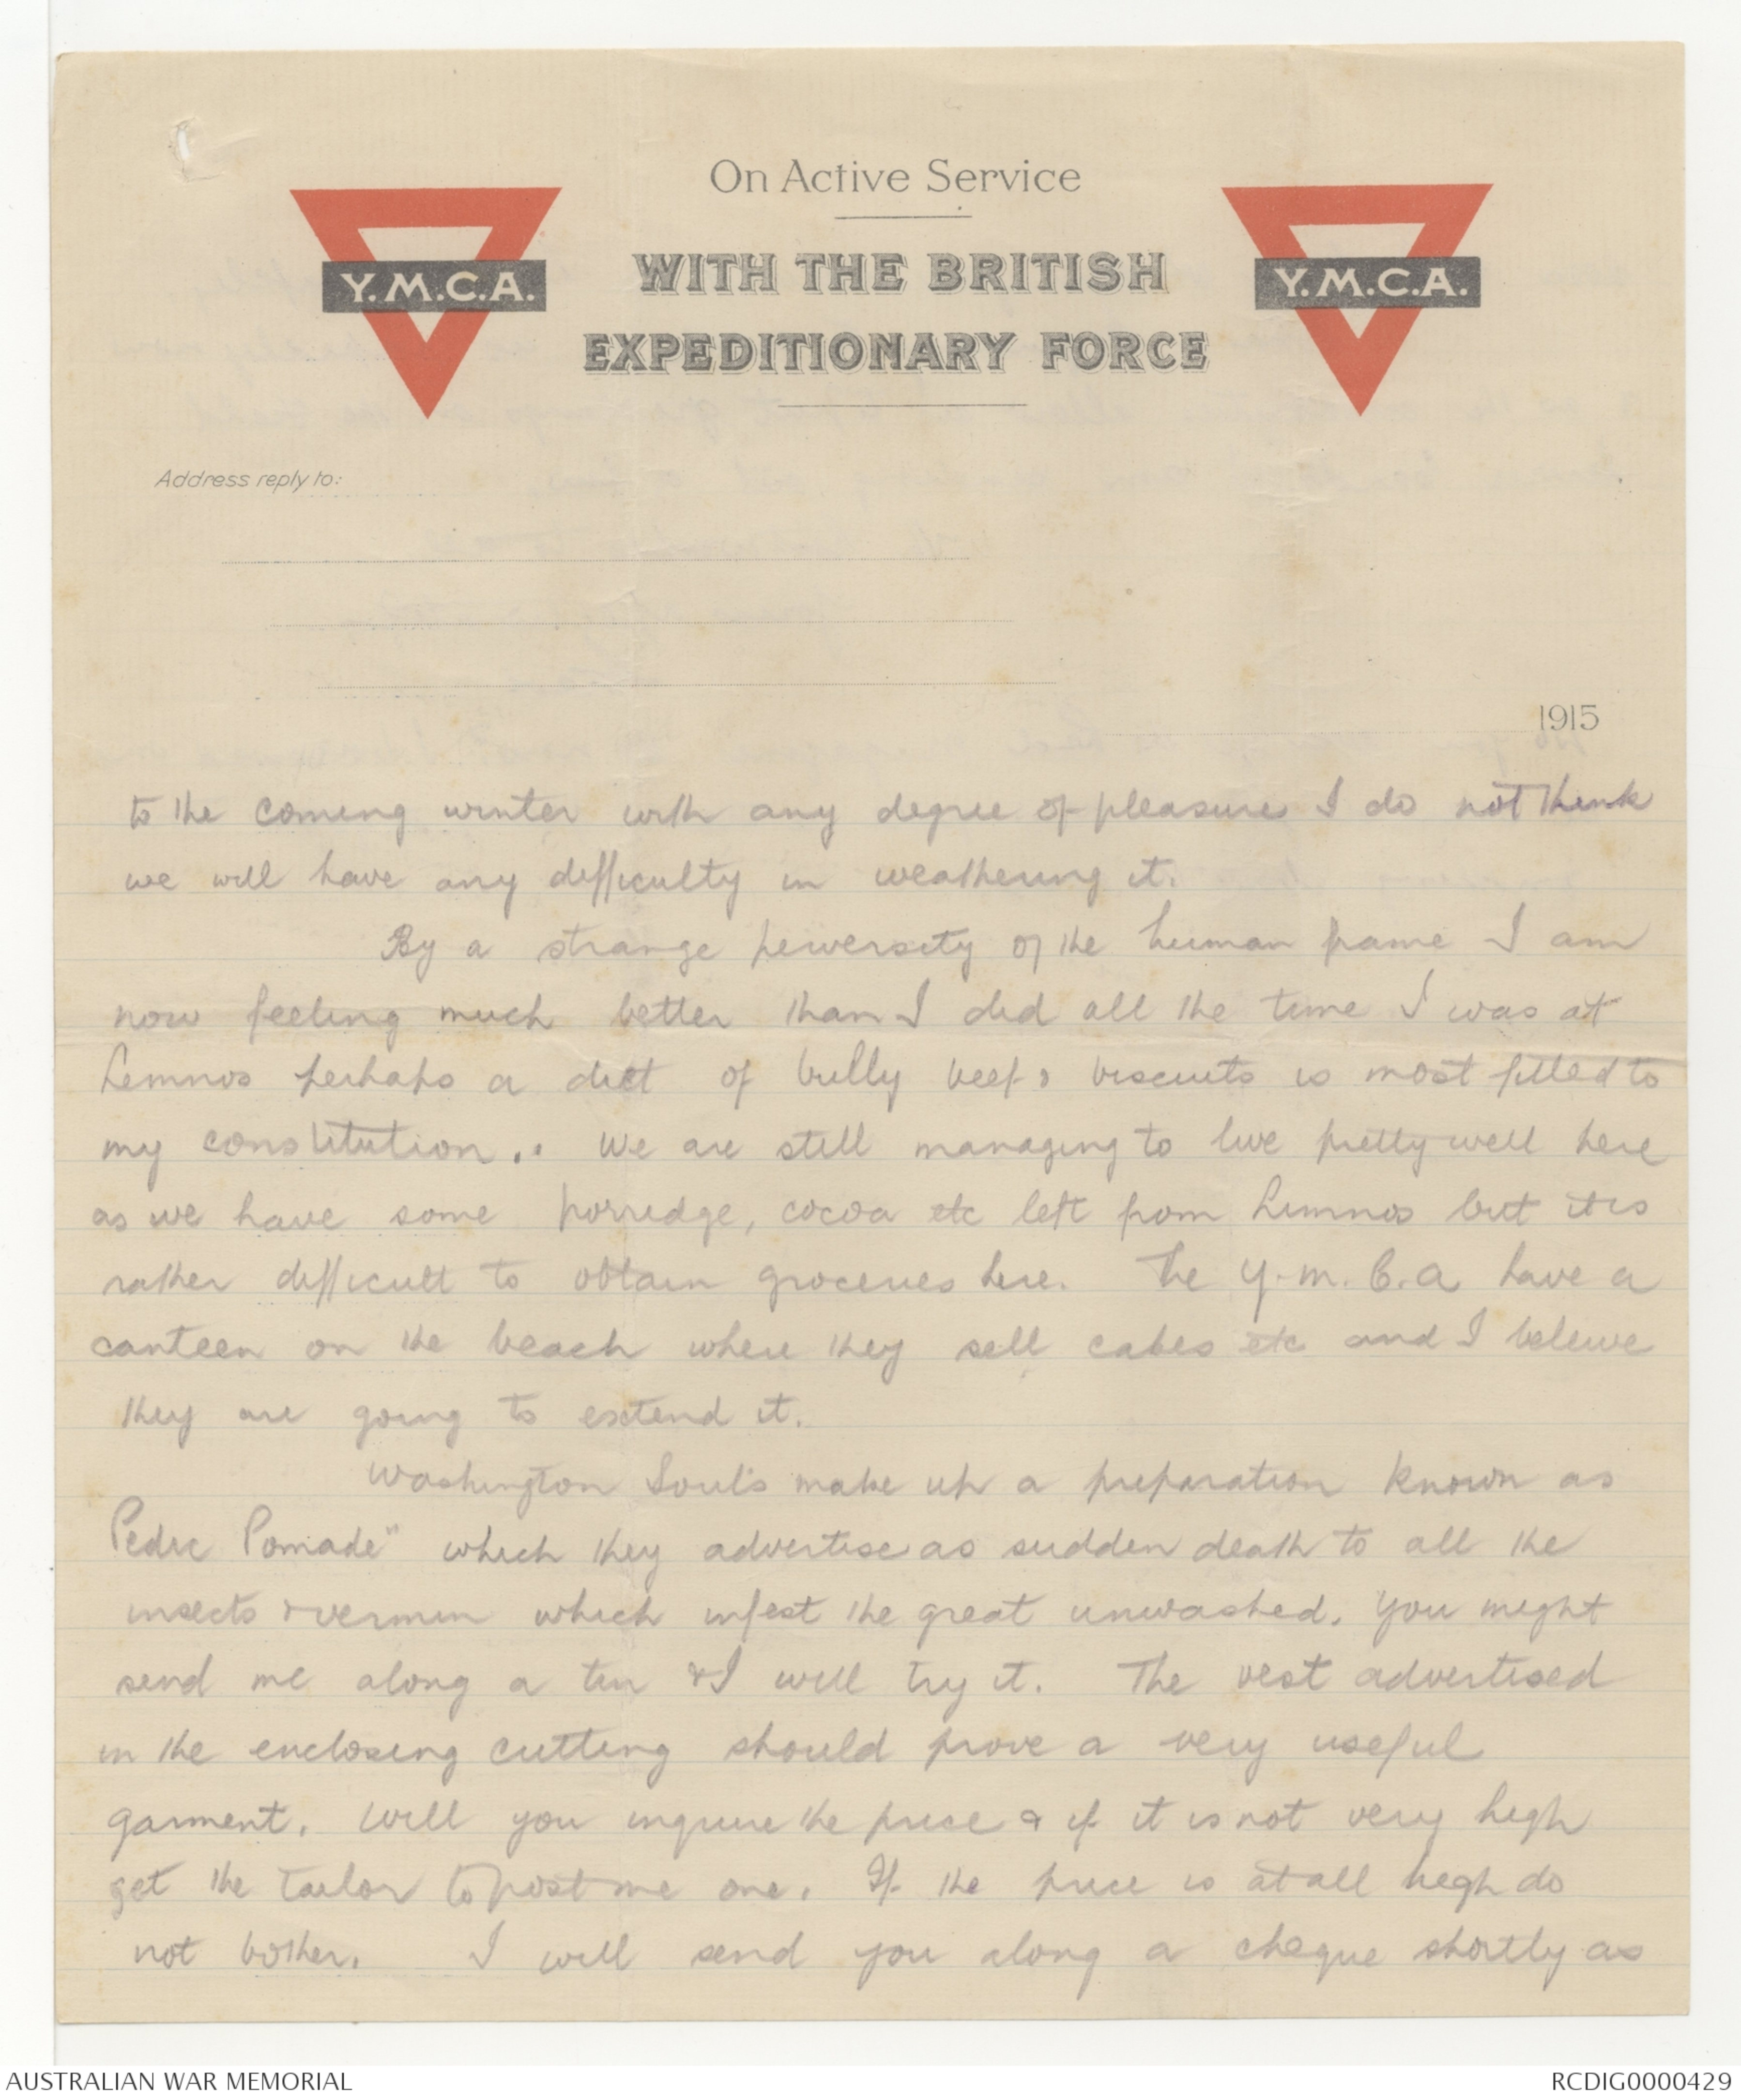 On Active Service
WITH THE BRITISH
EXPEDITIONARY FORCE
Y.M.C.A.
Y.M.C.A.
Address reply to:
1915
to the coming winter with any degree of pleasure I do not think
we will have any difficulty in weathering it.
By a strange perversity of the human frame I am
now feeling much better than I did all the time I was at
Lemnos perhaps a diet of bully beef & biscuits is most fitted to
my constitution.. We are still managing to live pretty well here
as we have some porridge, cocoa etc left from Lemnos but it is
rather difficult to obtain groceries here. The Y.M.C.A have a
canteen on the beach where they sell cakes etc and I believe
they are going to extend it.
Washington Soul's make up a preparation known as
Pedic Pomade" which they advertise as sudden death to all the
insects & vermin which infest the great unwashed. You might
send me along a tin & I will try it. The vest advertised
in the enclosing cutting should prove a very useful
garment. Will you inquire the price & if it is not very high
get the tailor to post me one. If the price is at all high do
not bother. I will send you along a cheque shortly as
AUSTRALIAN WAR MEMORIAL
RCDIG0000429